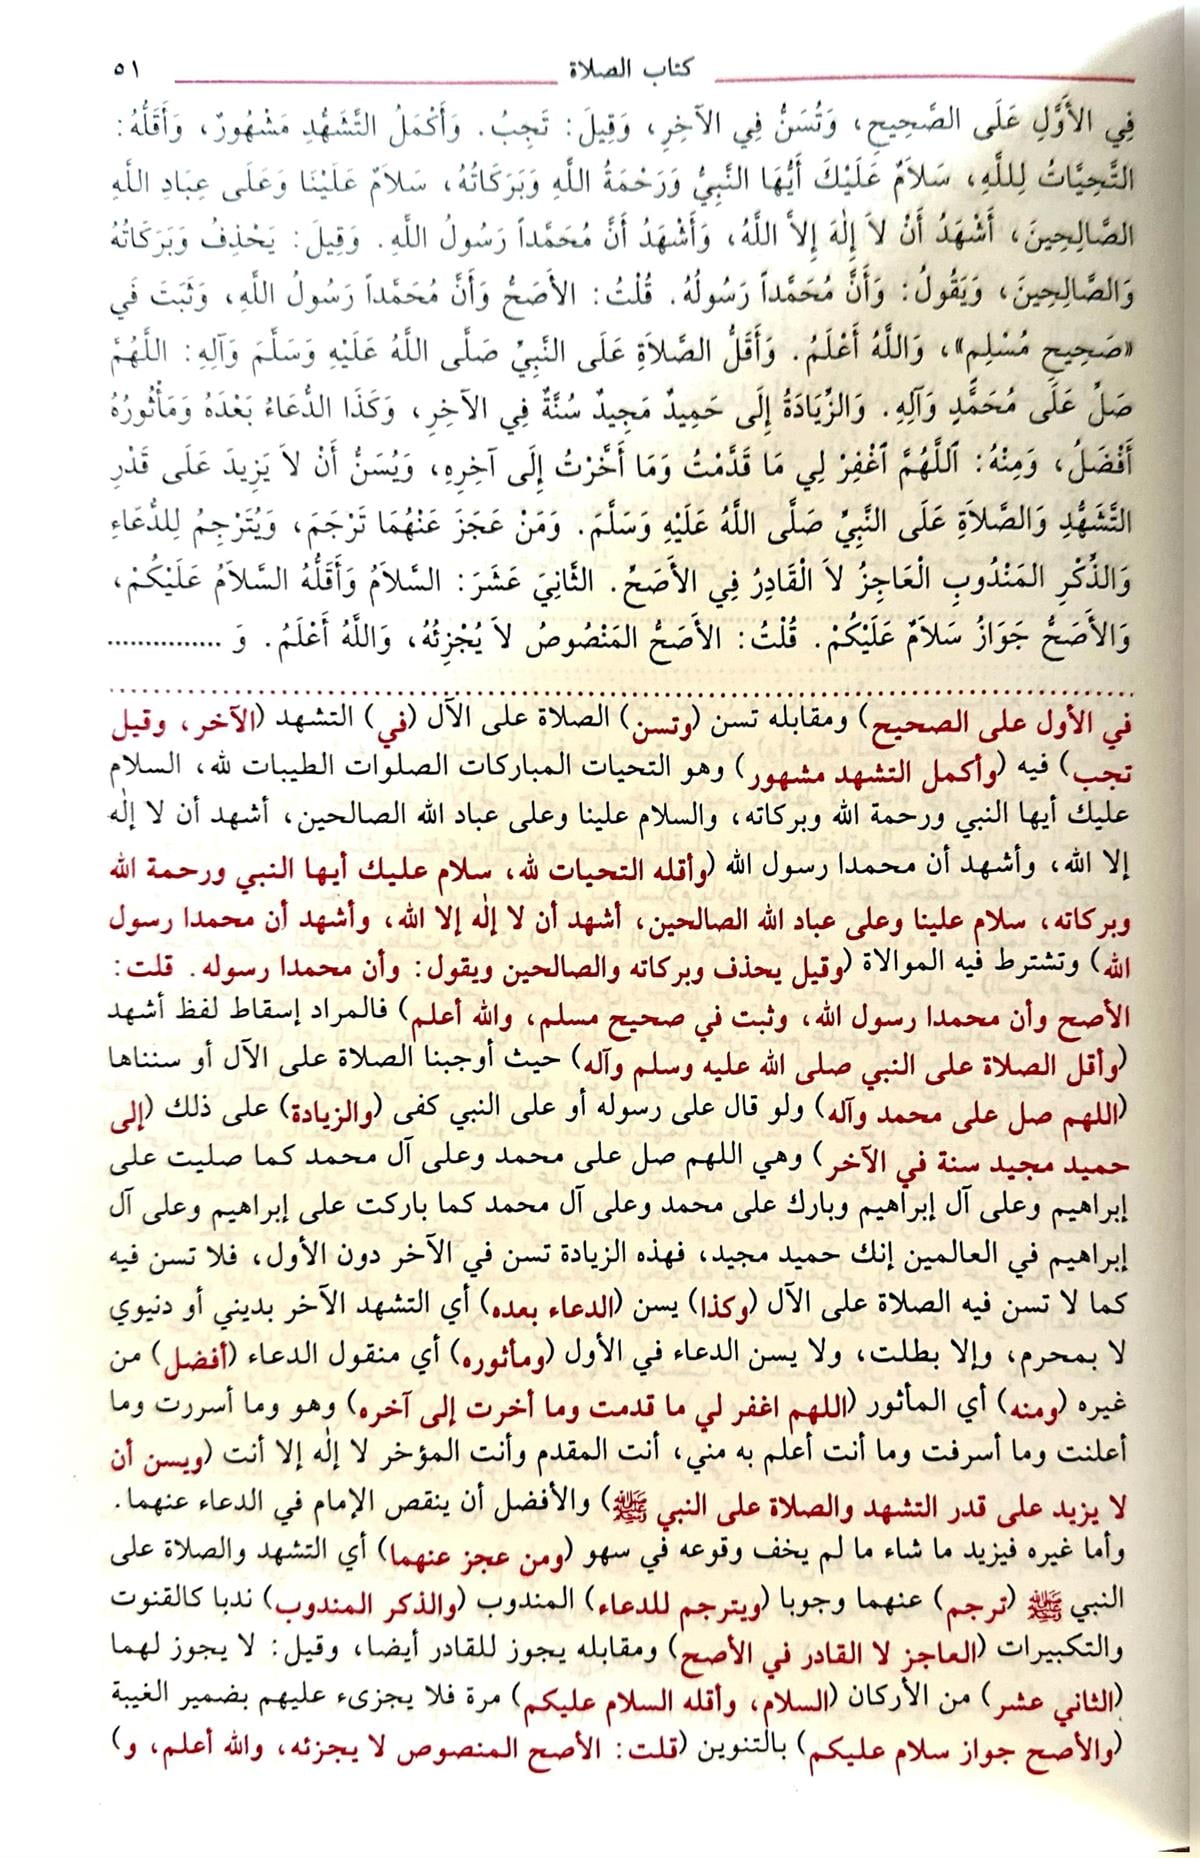 كتاب الصلاة ٥١
فِي الأَوَّلِ عَلَى الصَّحِيحِ، وَتُسَنُّ فِي الآخِرِ، وَقِيلَ: تَجِبُ. وَأَكْمَلُ التَّشَهُّدِ مَشْهُورٌ، وَأَقَلُّهُ:
التَّحِيَّاتُ لِلَّهِ، سَلاَمٌ عَلَيْكَ أَيُّهَا النَّبِيُّ وَرَحْمَةُ اللَّهِ وَبَرَكَاتُهُ، سَلاَمٌ عَلَيْنَا وَعَلَى عِبَادِ اللَّهِ
الصَّالِحِينَ، أَشْهَدُ أَنْ لاَ إِلٰهَ إِلاَّ اللَّهُ، وَأَشْهَدُ أَنَّ مُحَمَّداً رَسُولُ اللَّهِ. وَقِيلَ: يَحْذِفُ وَبَرَكَاتُهُ
وَالصَّالِحِينَ، وَيَقُولُ: وَأَنَّ مُحَمَّداً رَسُولُهُ. قُلْتُ: الأَصَحُّ وَأَنَّ مُحَمَّداً رَسُولُ اللَّهِ، وَثَبَتَ فِي
«صَحِيحِ مُسْلِمٍ»، وَاللَّهُ أَعْلَمُ. وَأَقَلُّ الصَّلاَةِ عَلَى النَّبِيِّ صَلَّى اللَّهُ عَلَيْهِ وَسَلَّمَ وَآلِهِ: اللَّهُمَّ
صَلِّ عَلَى مُحَمَّدٍ وَآلِهِ. وَالزِّيَادَةُ إِلَى حَمِيدٌ مَجِيدٌ سُنَّةٌ فِي الآخِرِ، وَكَذَا الدُّعَاءُ بَعْدَهُ وَمَأْثُورُهُ
أَفْضَلُ، وَمِنْهُ: ٱللَّهُمَّ ٱغْفِرْ لِي مَا قَدَّمْتُ وَمَا أَخَّرْتُ إِلَى آخِرِهِ، وَيُسَنُّ أَنْ لاَ يَزِيدَ عَلَى قَدْرِ
التَّشَهُّدِ وَالصَّلاَةِ عَلَى النَّبِيِّ صَلَّى اللَّهُ عَلَيْهِ وَسَلَّمَ. وَمَنْ عَجَزَ عَنْهُمَا تَرْجَمَ، وَيُتَرْجِمُ لِلدُّعَاءِ
وَالذِّكْرِ المَنْدُوبِ الْعَاجِزُ لاَ الْقَادِرُ فِي الأَصَحِّ. الثَّانِيَ عَشَرَ: السَّلاَمُ وَأَقَلُّهُ السَّلاَمُ عَلَيْكُمْ،
وَالأَصَحُّ جَوَازُ سَلاَمٌ عَلَيْكُمْ. قُلْتُ: الأَصَحُّ المَنْصُوصُ لاَ يُجْزِئُهُ، وَاللَّهُ أَعْلَمُ. وَ ...............
في الأول على الصحيح) ومقابله تسن (وتسن) الصلاة على الآل (في) التشهد (الآخر، وقيل
تجب) فيه (وأكمل التشهد مشهور) وهو التحيات المباركات الصلوات الطيبات لله، السلام
عليك أيها النبي ورحمة الله وبركاته، والسلام علينا وعلى عباد الله الصالحين، أشهد أن لا إلٰه
إلا الله، وأشهد أن محمدا رسول الله (وأقله التحيات لله، سلام عليك أيها النبي ورحمة الله
وبركاته، سلام علينا وعلى عباد الله الصالحين، أشهد أن لا إلٰه إلا الله، وأشهد أن محمدا رسول
الله) وتشترط فيه الموالاة (وقيل يحذف وبركاته والصالحين ويقول: وأن محمدا رسوله. قلت:
الأصح وأن محمدا رسول الله، وثبت في صحيح مسلم، والله أعلم) فالمراد إسقاط لفظ أشهد
(وأقل الصلاة على النبي صلى الله عليه وسلم وآله) حيث أوجبنا الصلاة على الآل أو سنناها
(اللهم صل على محمد وآله) ولو قال على رسوله أو على النبي كفى (والزيادة) على ذلك (إلى
حميد مجيد سنة في الآخر) وهي اللهم صل على محمد وعلى آل محمد كما صليت على
إبراهيم وعلى آل إبراهيم وبارك على محمد وعلى آل محمد كما باركت على إبراهيم وعلى آل
إبراهيم في العالمين إنك حميد مجيد، فهذه الزيادة تسن في الآخر دون الأول، فلا تسن فيه
كما لا تسن فيه الصلاة على الآل (وكذا) يسن (الدعاء بعده) أي التشهد الآخر بديني أو دنيوي
لا بمحرم، وإلا بطلت، ولا يسن الدعاء في الأول (ومأثوره) أي منقول الدعاء (أفضل) من
غيره (ومنه) أي المأثور (اللهم اغفر لي ما قدمت وما أخرت إلى آخره) وهو وما أسررت وما
أعلنت وما أسرفت وما أنت أعلم به مني، أنت المقدم وأنت المؤخر لا إلٰه إلا أنت (ويسن أن
لا يزيد على قدر التشهد والصلاة على النبي ﷺ) والأفضل أن ينقص الإمام في الدعاء عنهما.
وأما غيره فيزيد ما شاء ما لم يخف وقوعه في سهو (ومن عجز عنهما) أي التشهد والصلاة على
النبي ﷺ (ترجم) عنهما وجوبا (ويترجم للدعاء) المندوب (والذكر المندوب) ندبا كالقنوت
والتكبيرات (العاجز لا القادر في الأصح) ومقابله يجوز للقادر أيضا، وقيل: لا يجوز لهما
(الثاني عشر) من الأركان (السلام، وأقله السلام عليكم) مرة فلا يجزىء عليهم بضمير الغيبة
(والأصح جواز سلام عليكم) بالتنوين (قلت: الأصح المنصوص لا يجزئه، والله أعلم، و)